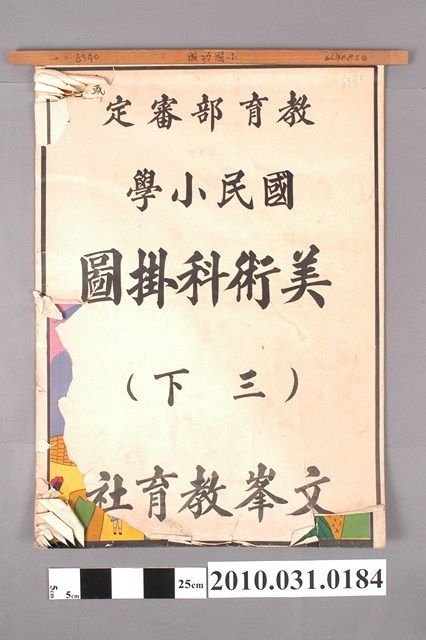 教育部審定
國民小學
美術科掛圖
（三下）
文峯教育社
5cm 5cm 25cm
2010.031.0184